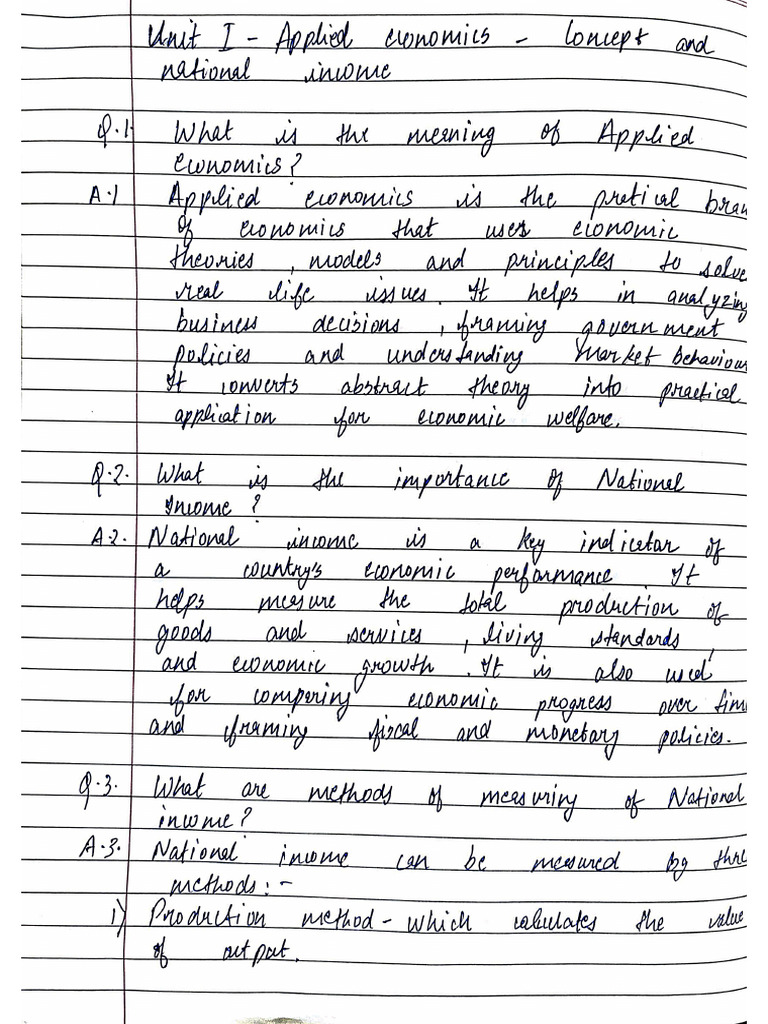 Unit I - Applied economics - Concept and
national income
Q.1. What is the meaning of Applied
economics?
A.1 Applied economics is the pretical bran
of economics that uses economic
theories, models and principles to solve
real life issues. It helps in analyzing
business decisions, framing government
policies and understanding market behaviour
It converts abstract theory into practical
application for economic welfare.
Q.2. What is the importance of National
Income?
A.2. National income is a key indicetor of
a country's economic performance. It
helps measure the total production of
goods and services, living standards,
and economic growth. It is also used
for compering economic progress over time
and framing fiscal and monetary policies.
Q.3. What are methods of measuring of National
income?
A.3. National income can be measured by thre
methods:-
1) Production method - which calculates the value
of output.